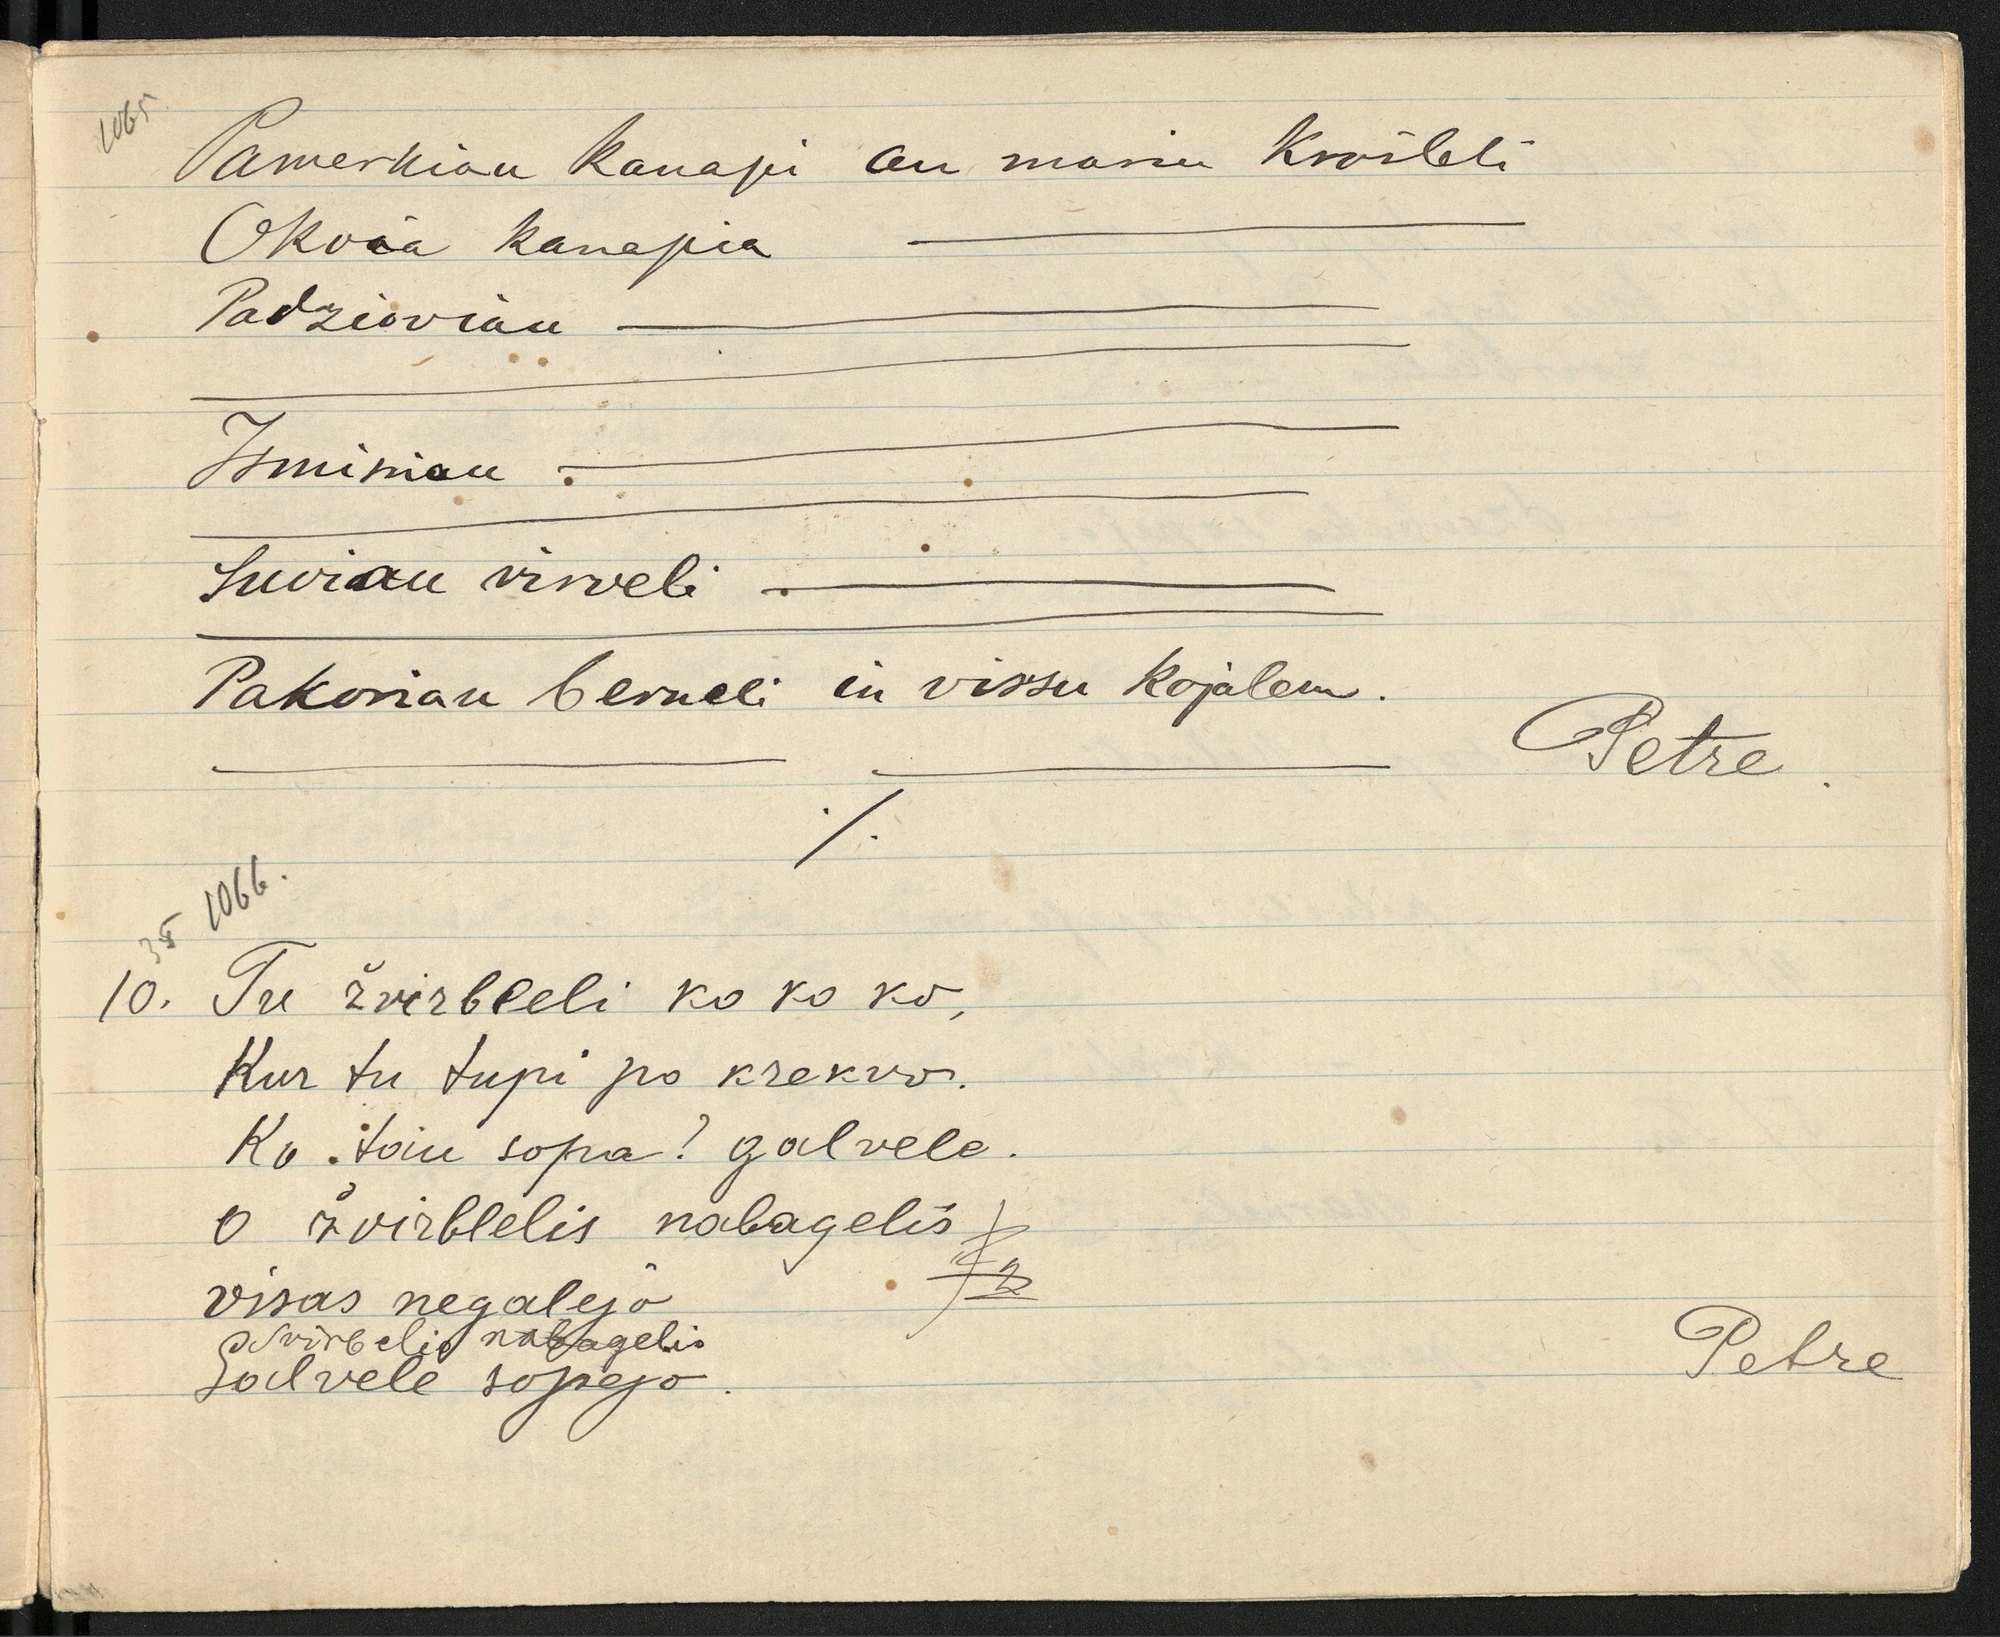 1065
Pamerkiau kanapi an mariu kraišleli
Okvaia kanapia
Padziaviau
Isminiau
Suviau virveli
Pakoriau berneli in vissu kojalem.
Petre.
./.
1066.
10. Tu žvirbleli ko ko ko,
Kur tu tupi po krekvo.
Ko tau sopa? galvele.
O žvirblelis nabagelis
visas negalejo
Svirbelis nabagelis
Galvele sopejo.
Petre